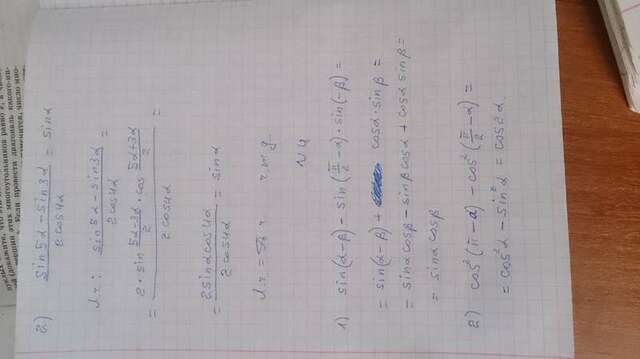 2) (sin5α − sin3α)/(2cos4α) = sinα
л.ч.: (sin5α − sin3α)/(2cos4α) =
= (2 · sin (5α−3α)/2 · cos (5α+3α)/2)/(2cos4α)
= (2sinαcos4α)/(2cos4α) = sinα
ч.т.д.
N4
1) sin(α−β) − sin(π/2 − α) · sin(−β) =
= sin(α−β) + cosα · sinβ =
= sinα cosβ − sinβ cosα + cosα sinβ =
= sinα cosβ
2) cos²(π − α) − cos²(π/2 − α) =
= cos²α − sin²α = cos2α